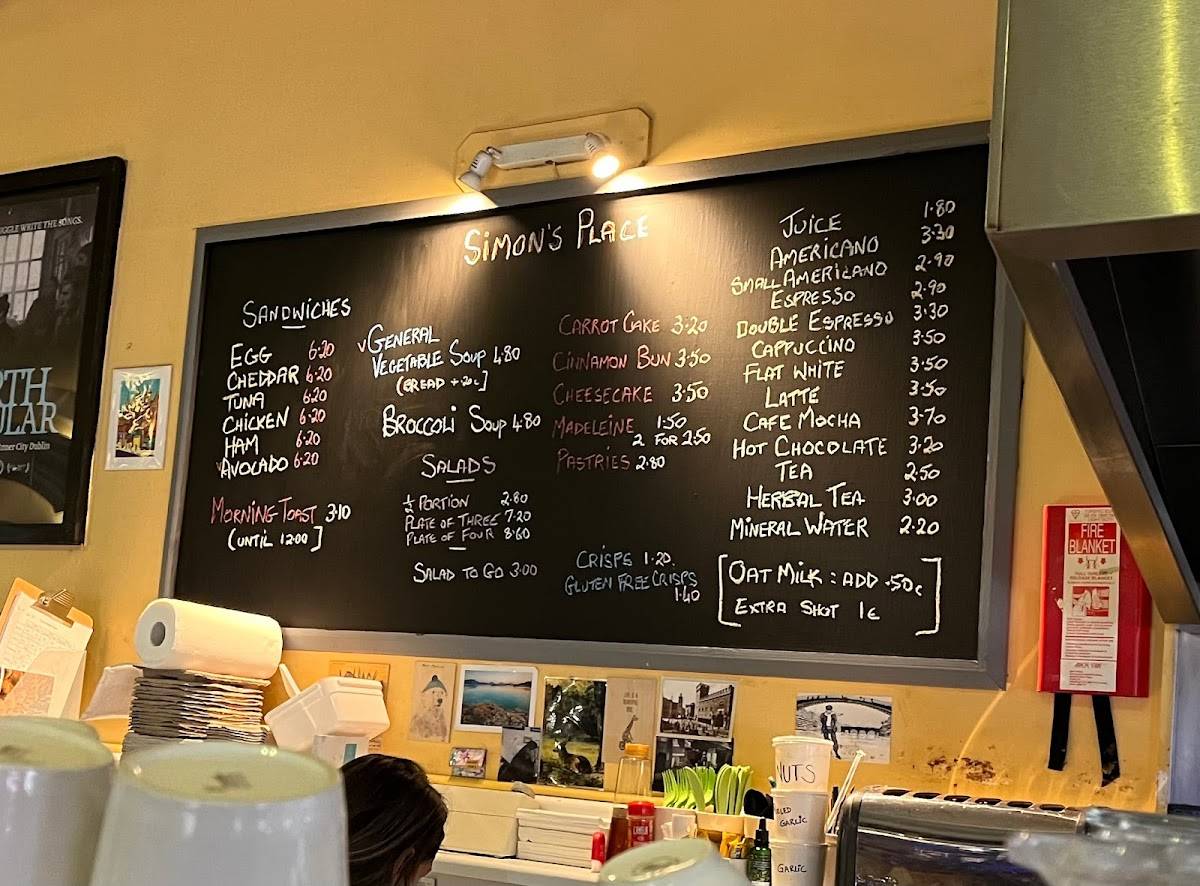 GGLE WRITE THE SONGS.
RTH
ULAR
nner City Dublin
SIMON'S PLACE
SANDWICHES
EGG 6.20
CHEDDAR 6.20
TUNA 6.20
CHICKEN 6.20
HAM 6.20
V AVOCADO 6.20
MORNING TOAST 3.10
(UNTIL 12.00]
V GENERAL
VEGETABLE SOUP 4.80
(BREAD +20c]
BROCCOLI SOUP 4.80
SALADS
½ PORTION 2.80
PLATE OF THREE 7.20
PLATE OF FOUR 8.60
SALAD TO GO 3.00
CARROT CAKE 3.20
CINNAMON BUN 3.50
CHEESECAKE 3.50
MADELEINE 1.50
2 FOR 2.50
PASTRIES 2.80
CRISPS 1.20.
GLUTEN FREE CRISPS
1.40
JUICE 1.80
AMERICANO 3.30
SMALL AMERICANO 2.90
ESPRESSO 2.90
DOUBLE ESPRESSO 3.30
CAPPUCCINO 3.50
FLAT WHITE 3.50
LATTE 3.50
CAFE MOCHA 3.70
HOT CHOCOLATE 3.20
TEA 2.50
HERBAL TEA 3.00
MINERAL WATER 2.20
[OAT MILK : ADD .50c
EXTRA SHOT 1€]
FIRE
BLANKET
NUTS
GARLIC
GARLIC